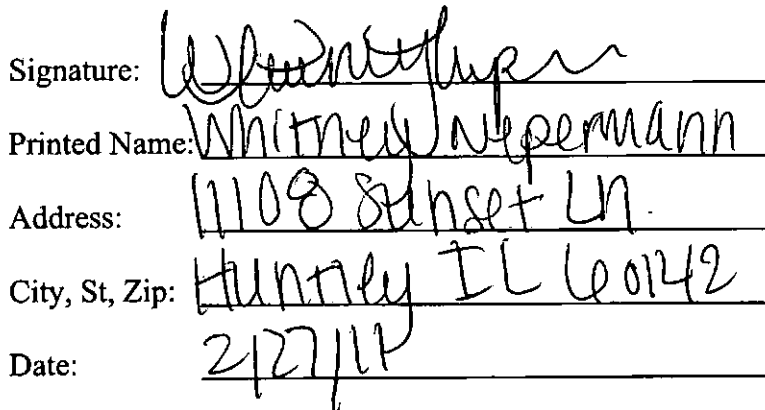 Signature:
Printed Name: Whitney Niepermann
Address: 11108 Sunset Ln.
City, St, Zip: Huntley IL 60142
Date: 2/27/17